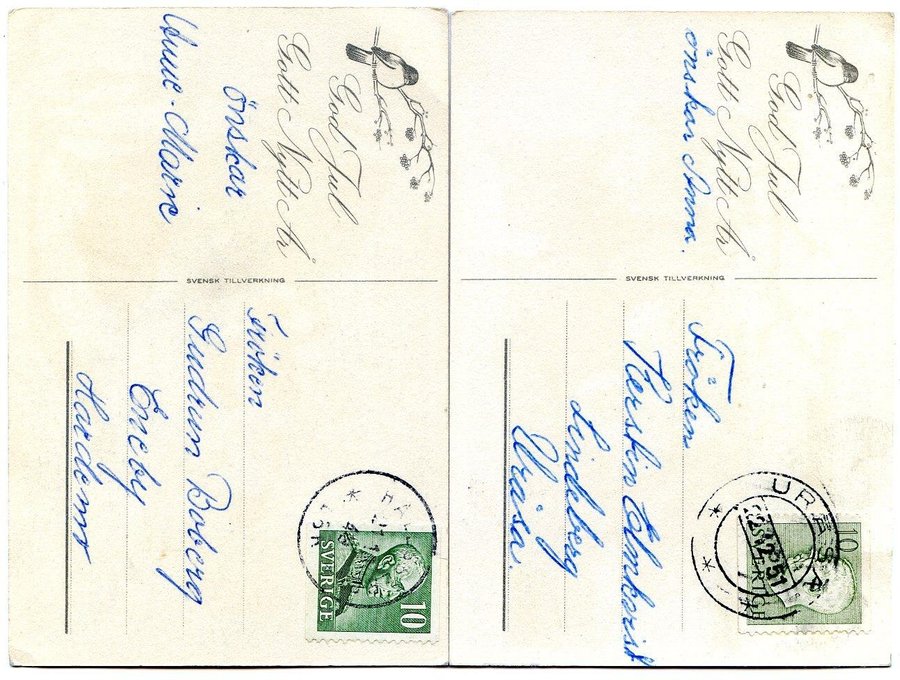 God Jul
Gott Nytt År
önskar
Anne-Marie
SVENSK TILLVERKNING
Fröken
Gudrun Boberg
Eneby
Hardemo
SVERIGE
10
God Jul
Gott Nytt År
önskar Anna.
SVENSK TILLVERKNING
Fröken
Kerstin Elmkvist
Lindeberg
Uråsa.
URÅSA
SVERIGE
10